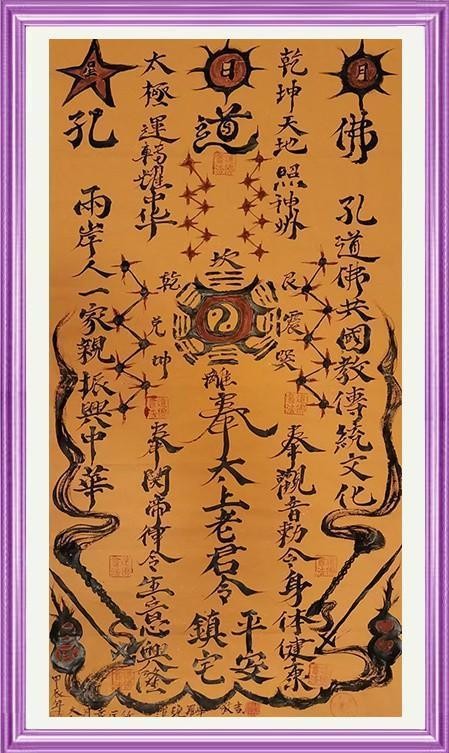 月
佛
孔道佛共國教傳統文化
乾坤天地照神州
日
道
太極運轉耀中华
星
孔
兩岸人一家親振興中華
坎
艮
震
巽
離
坤
兑
乾
奉觀音勅令身体健康
奉太上老君令
平安
鎮宅
奉関帝律令生意興隆
甲辰年